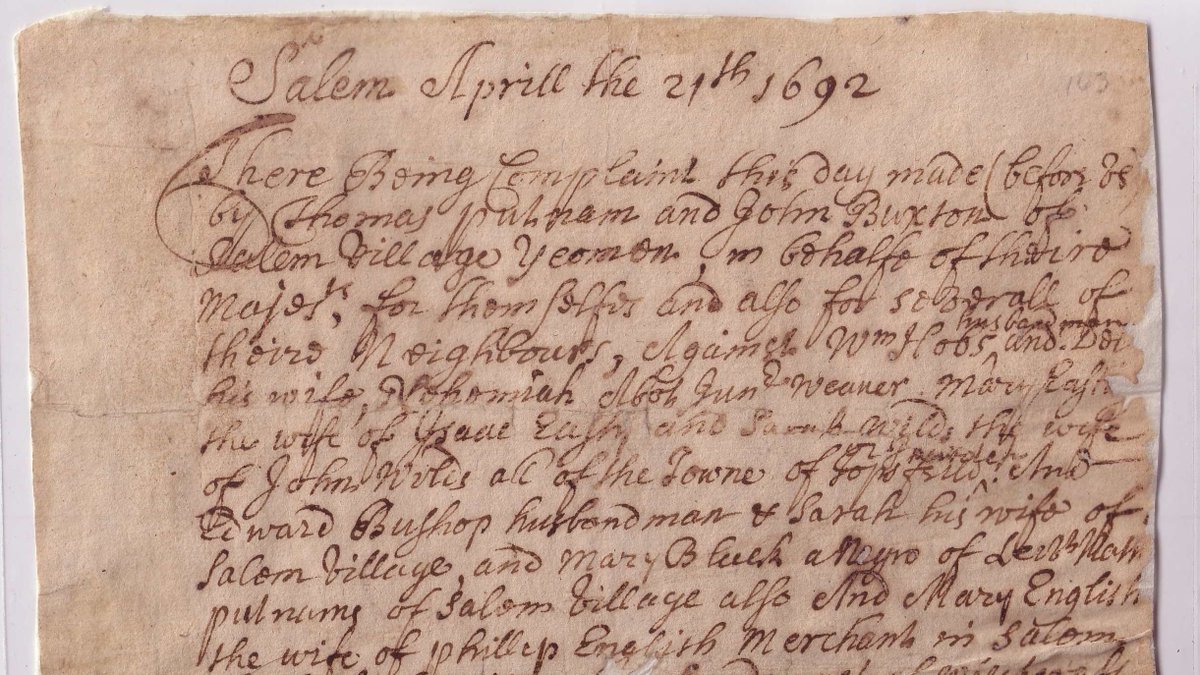 Salem Aprill the 21th 1692
163
There Being Complaint this day made (before us)
by Thomas putnam and John Buxton of
Salem Village Yeomen, in behalfe of theire
Majests, for themselfes and also for severall of
theire Neighbours, Against Wm Hobs husbandman and Del
his wife, Nehemiah Abot Junr weaver Mary Easty
the wife of Isaac Easty and Sarah Wilds the wife
of John Wilds all of the Towne of Topsfeild. And
Edward Bushop husbandman & Sarah his wife of
Salem Village, and Mary Black a Negro of Leut Nath
putnams of Salem Village also And Mary English
the wife of phillip English Merchant in Salem